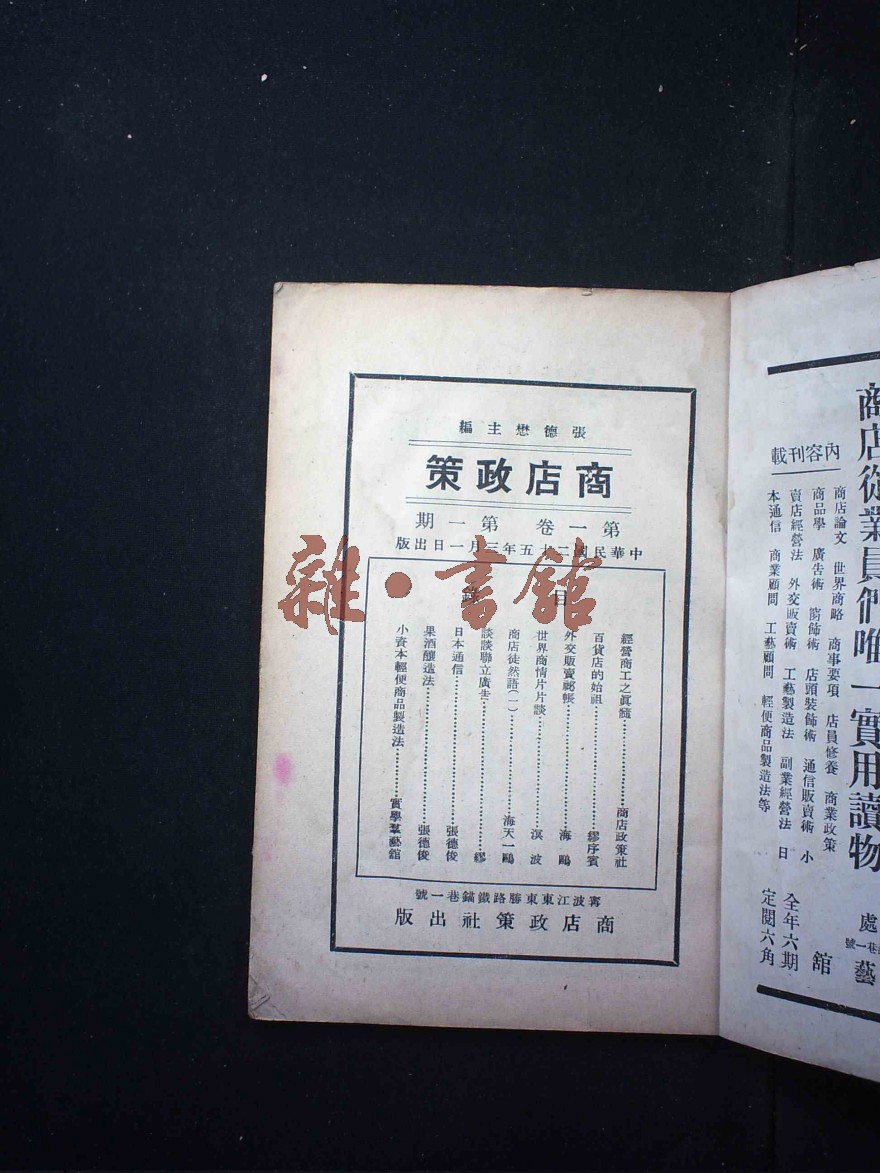 張德懋主編
商店政策
第一卷 第一期
中華民國二十五年三月一日出版
目
經營商工之眞髓……商店政策社
百貨店的始祖……繆序賓
外交販賣祕帳……海鷗
世界商情片片談……溟波
商店徒然語(一)……海天一鷗
談談聯立廣告……繆
日本通信……張德俊
果酒釀造法……張德俊
小資本輕便商品製造法……實學羣藝舘
甯波江東東勝路鐵錨巷一號
商店政策社出版
雜·書館
商店從業員們唯一實用讀物
內容刊載
商店論文 世界商略 商事要項 店員修養 商業政策
商品學 廣告術 窗飾術 店頭裝飾術 通信販賣術 小
賣店經營法 外交販賣術 工藝製造法 副業經營法 日
本通信 商業顧問 工藝顧問 輕便商品製造法等
處
巷一號
藝
舘
全年六期
定閱六角